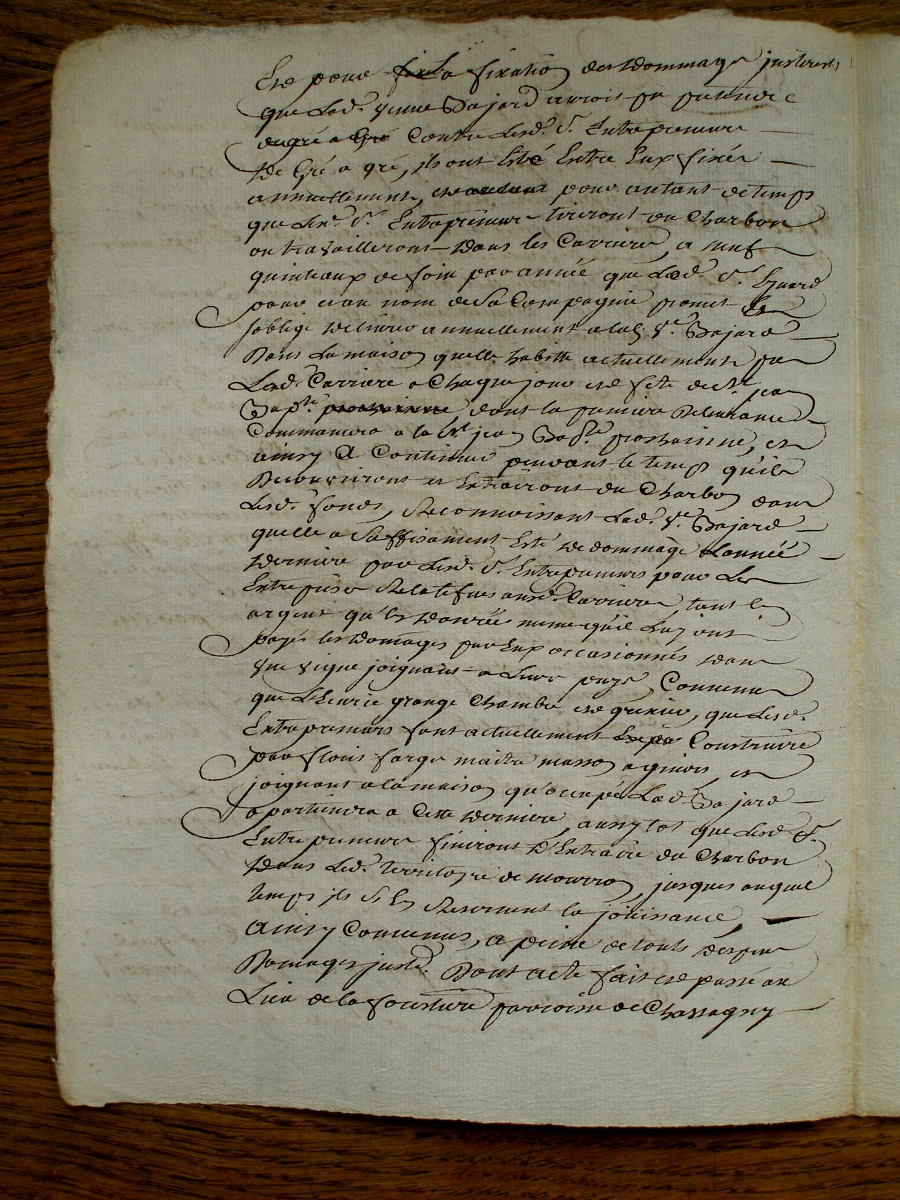 Et pour la fixation des dommages interests
que Lad. veuve Bajard auroit pu pretendre
de gré a Gré Contre Lesd. Srs. Entrepreneurs
de Gré a gré, ils ont Eté Entre Eux fixés
annuellement, et pour autant de temps
que Lesd. Srs. Entrepreneurs tireront du Charbon
ou travailleront dans les Carrieres, a neuf
quintaux de foin par année que Led. Sr.
pour et au nom de Sa Compagnie promet et
soblige de livrer annuellement a lad. Ve. Bajard
Dans La maison quelle habitte actuellement
Lad. Carriere a Chaque jour et fete de St. jean
Bapte. prochainne dont la premiere Delivrance
Commancera a la St. jean Bapte. prochainne, et
ainsy a Continuer pendant le temps qu'ils
Decouvriront et Extrairont du Charbon dans
Lesd. fonds, Reconnoissant Lad. Ve. Bajard
quelle a Suffisament Eté dedommagée L'année
derniere par Lesd. Srs. Entrepreneurs pour Les
Entreprises Relatives auxd. Carrieres, tant en
argent qu'en danrées meme qu'ils Luy ont
payé les domages par Eux occasionnés dans
Une vigne joignant a Leurs puys, Convenu
que L'Ecurie grange Chambre et grenier, que Lesd.
Entrepreneurs font actuellement Construire
par flois farge maitre masson a givors, et
joignant a la maison qu'occupe Lad. Bajard
apartiendra a Cette derniere, aussytot que Lesd. Srs.
Entrepreneurs finiront d'Extraire du Charbon
dans Led. territoire de mouron, jusques auquel
temps ils S'En Reservent la jouissance
Ainsy Convenus, a peine de touts depens
Domages jnsts. Dont acte fait et passé au
Lieu de la parroisse de Chassagny